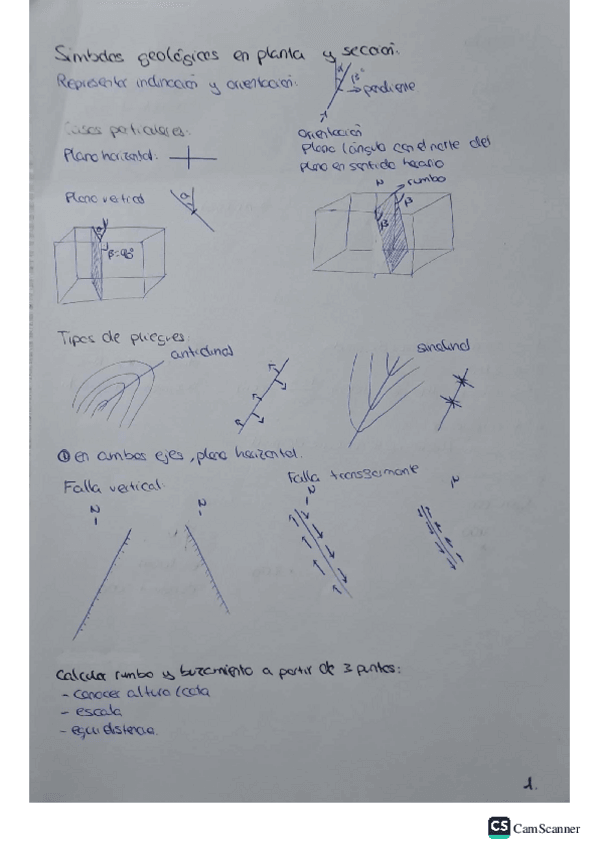 Simbolos geológicos en planta y sección.
Representar inclinación y orientación:
α
β°
→ pendiente
Casos particulares:
Plano horizontal:
orientación
plano (ángulo con el norte del
plano en sentido horario
Plano vertical
α
N
rumbo
β
β
α
β=90°
Tipos de pliegues:
anticlinal
sinclinal
① en ambos ejes, plano horizontal.
Falla vertical
Falla transformante
N
N
N
N
Calcular rumbo y buzamiento a partir de 3 puntos:
- conocer altura/cota
- escala
- equidistancia
1.
CS CamScanner